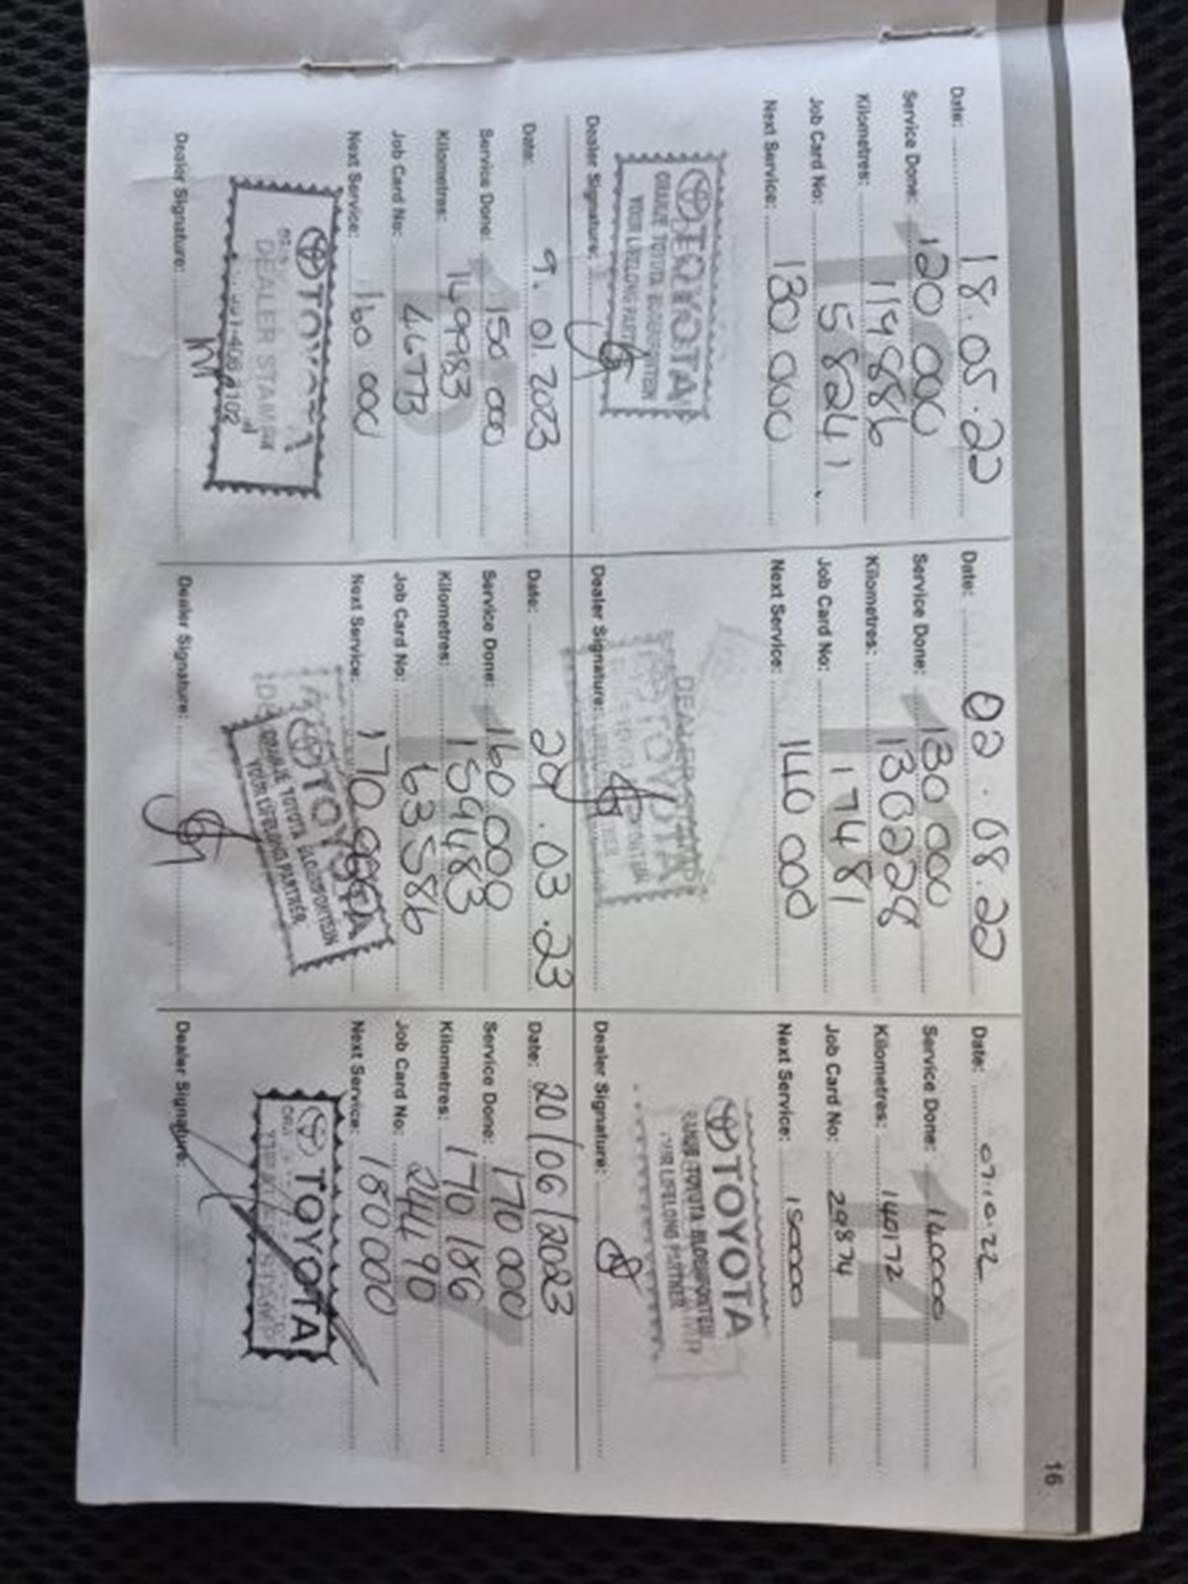 16
Date: 18.05.22
Service Done: 120 000
Kilometres: 119886
Job Card No: 58241
Next Service: 130 000
TOYOTA
ORANJE TOYOTA BLOEMFONTEIN
YOUR LIFELONG PARTNER
Dealer Signature:
Date: 02.08.22
Service Done: 130 000
Kilometres: 130228
Job Card No: 17481
Next Service: 140 000
DEALER STAMP
TOYOTA
Dealer Signature:
14
Date: 07.10.22
Service Done: 140000
Kilometres: 140172
Job Card No: 29874
Next Service: 150000
TOYOTA
TOYOTA BLOEMFONTEIN
LIFELONG PARTNER
Dealer Signature:
Date: 9.01.2023
Service Done: 150 000
Kilometres: 149983
Job Card No: 46773
Next Service: 160 000
DEALER STAMP
Dealer Signature:
Date: 24.03.23
Service Done: 160 000
Kilometres: 159483
Job Card No: 63586
Next Service: 170 000
TOYOTA
ORANJE TOYOTA BLOEMFONTEIN
YOUR LIFELONG PARTNER
Dealer Signature:
Date: 20/06/2023
Service Done: 170 000
Kilometres: 170186
Job Card No: 244190
Next Service: 180 000
TOYOTA
Dealer Signature: